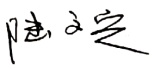 陆文定